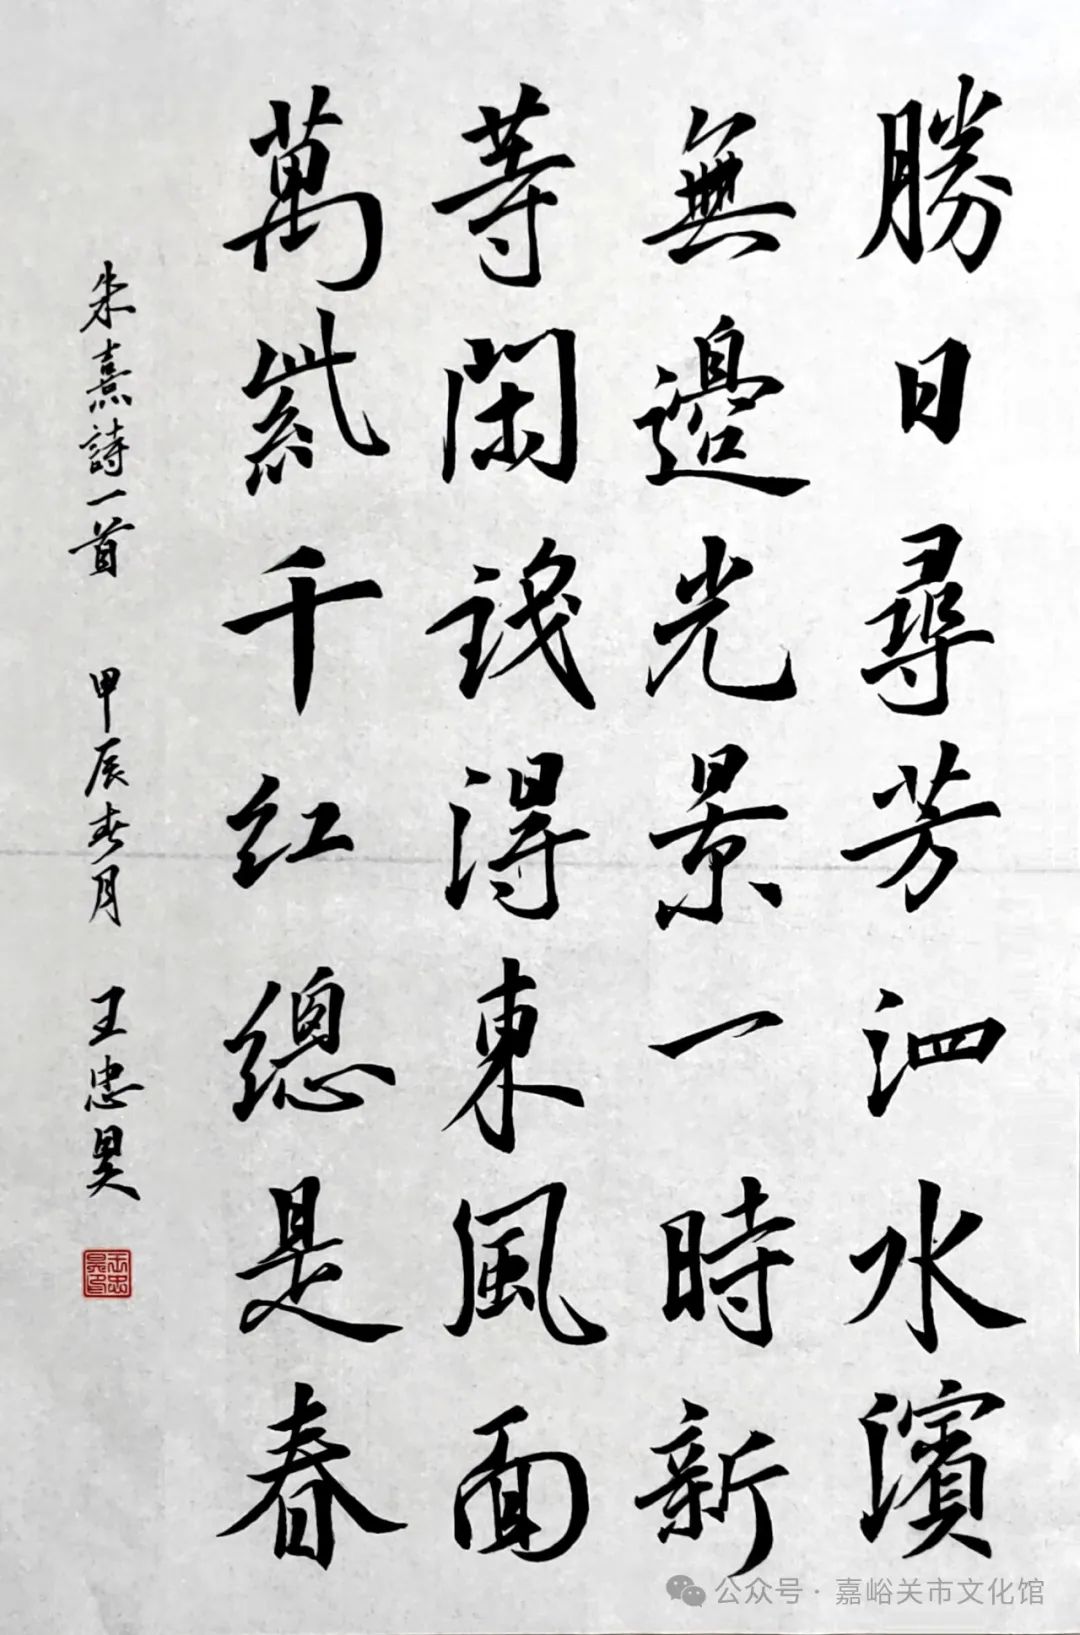 勝日尋芳泗水濱
無邊光景一時新
等閑識得東風面
萬紫千红總是春
朱熹詩一首 甲辰春月 王忠昊
王忠昊印
公众号·嘉峪关市文化馆